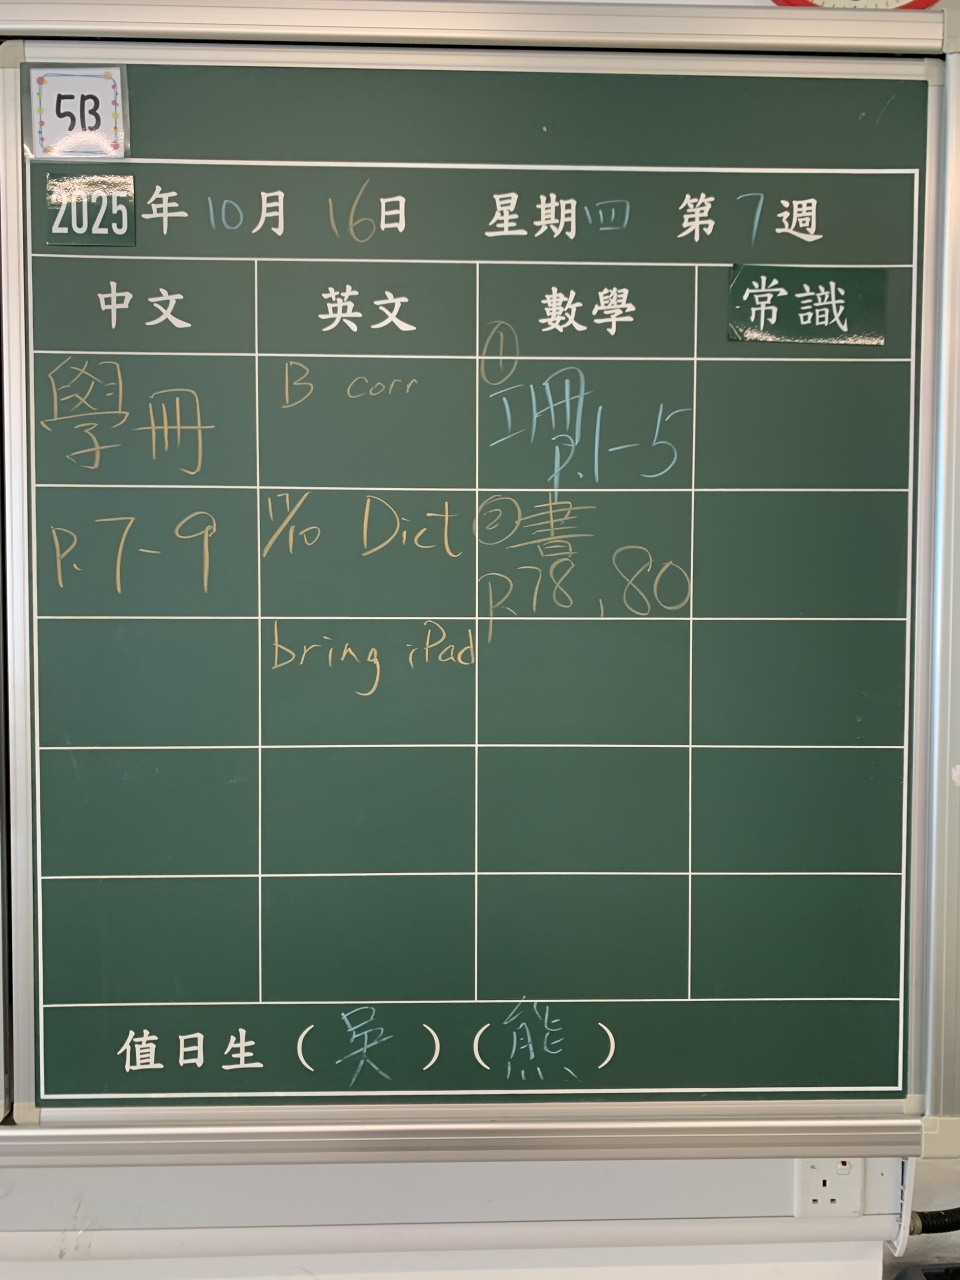 5B
2025年10月16日 星期四 第7週
中文 英文 數學 常識
學冊
P.7-9
B corr
17/10 Dict
bring iPad
① 工冊
P.1-5
② 書
P.78,80
值日生(吳)(熊)